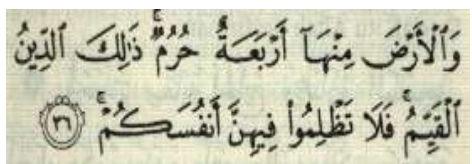 وَٱلْأَرْضَ مِنْهَآ أَرْبَعَةٌ حُرُمٌ ۚ ذَٰلِكَ ٱلدِّينُ
ٱلْقَيِّمُ ۚ فَلَا تَظْلِمُوا۟ فِيهِنَّ أَنفُسَكُمْ ۚ ٣٦